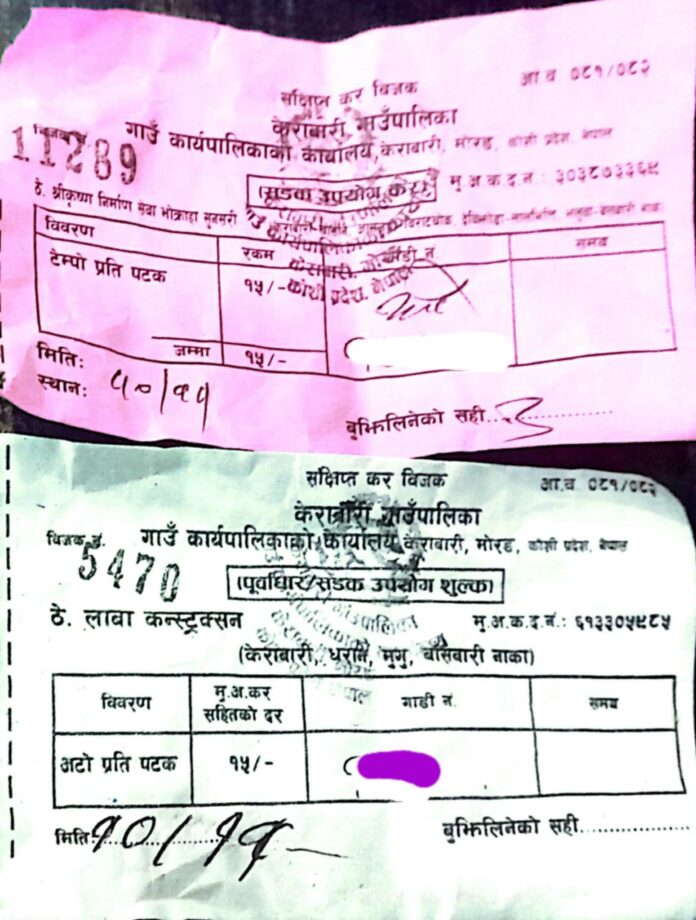 संक्षिप्त कर विजक
आ.व ०८१/०८२
केराबारी गाउँपालिका
विजक नं.
11289
गाउँ कार्यपालिकाको कार्यालय, केराबारी, मोरङ, कोशी प्रदेश, नेपाल
(सडक उपयोग कर)
मु.अ.क.द.नं.: ३०३८७३३६९
ठे. श्रीकृष्ण निर्माण सेवा भोक्राहा सुनसरी
विवरण रकम गाडी नं. समय
टेम्पो प्रति पटक १५/-
जम्मा १५/-
मिति:
स्थान:
बुझिलिनेको सही
संक्षिप्त कर विजक
आ.व. ०८१/०८२
केराबारी गाउँपालिका
विजक नं.
5470
गाउँ कार्यपालिकाको कार्यालय, केराबारी, मोरङ, कोशी प्रदेश, नेपाल
(पूर्वाधार/सडक उपयोग शुल्क)
ठे. लाबा कन्स्ट्रक्सन
मु.अ.क.द.नं.: ६१३३०५९८५
(केराबारी, धरान, मुगु, बाँसबारी नाका)
विवरण मु.अ.कर सहितको दर गाडी नं. समय
अटो प्रति पटक १५/-
मिति १०/११
बुझिलिनेको सही